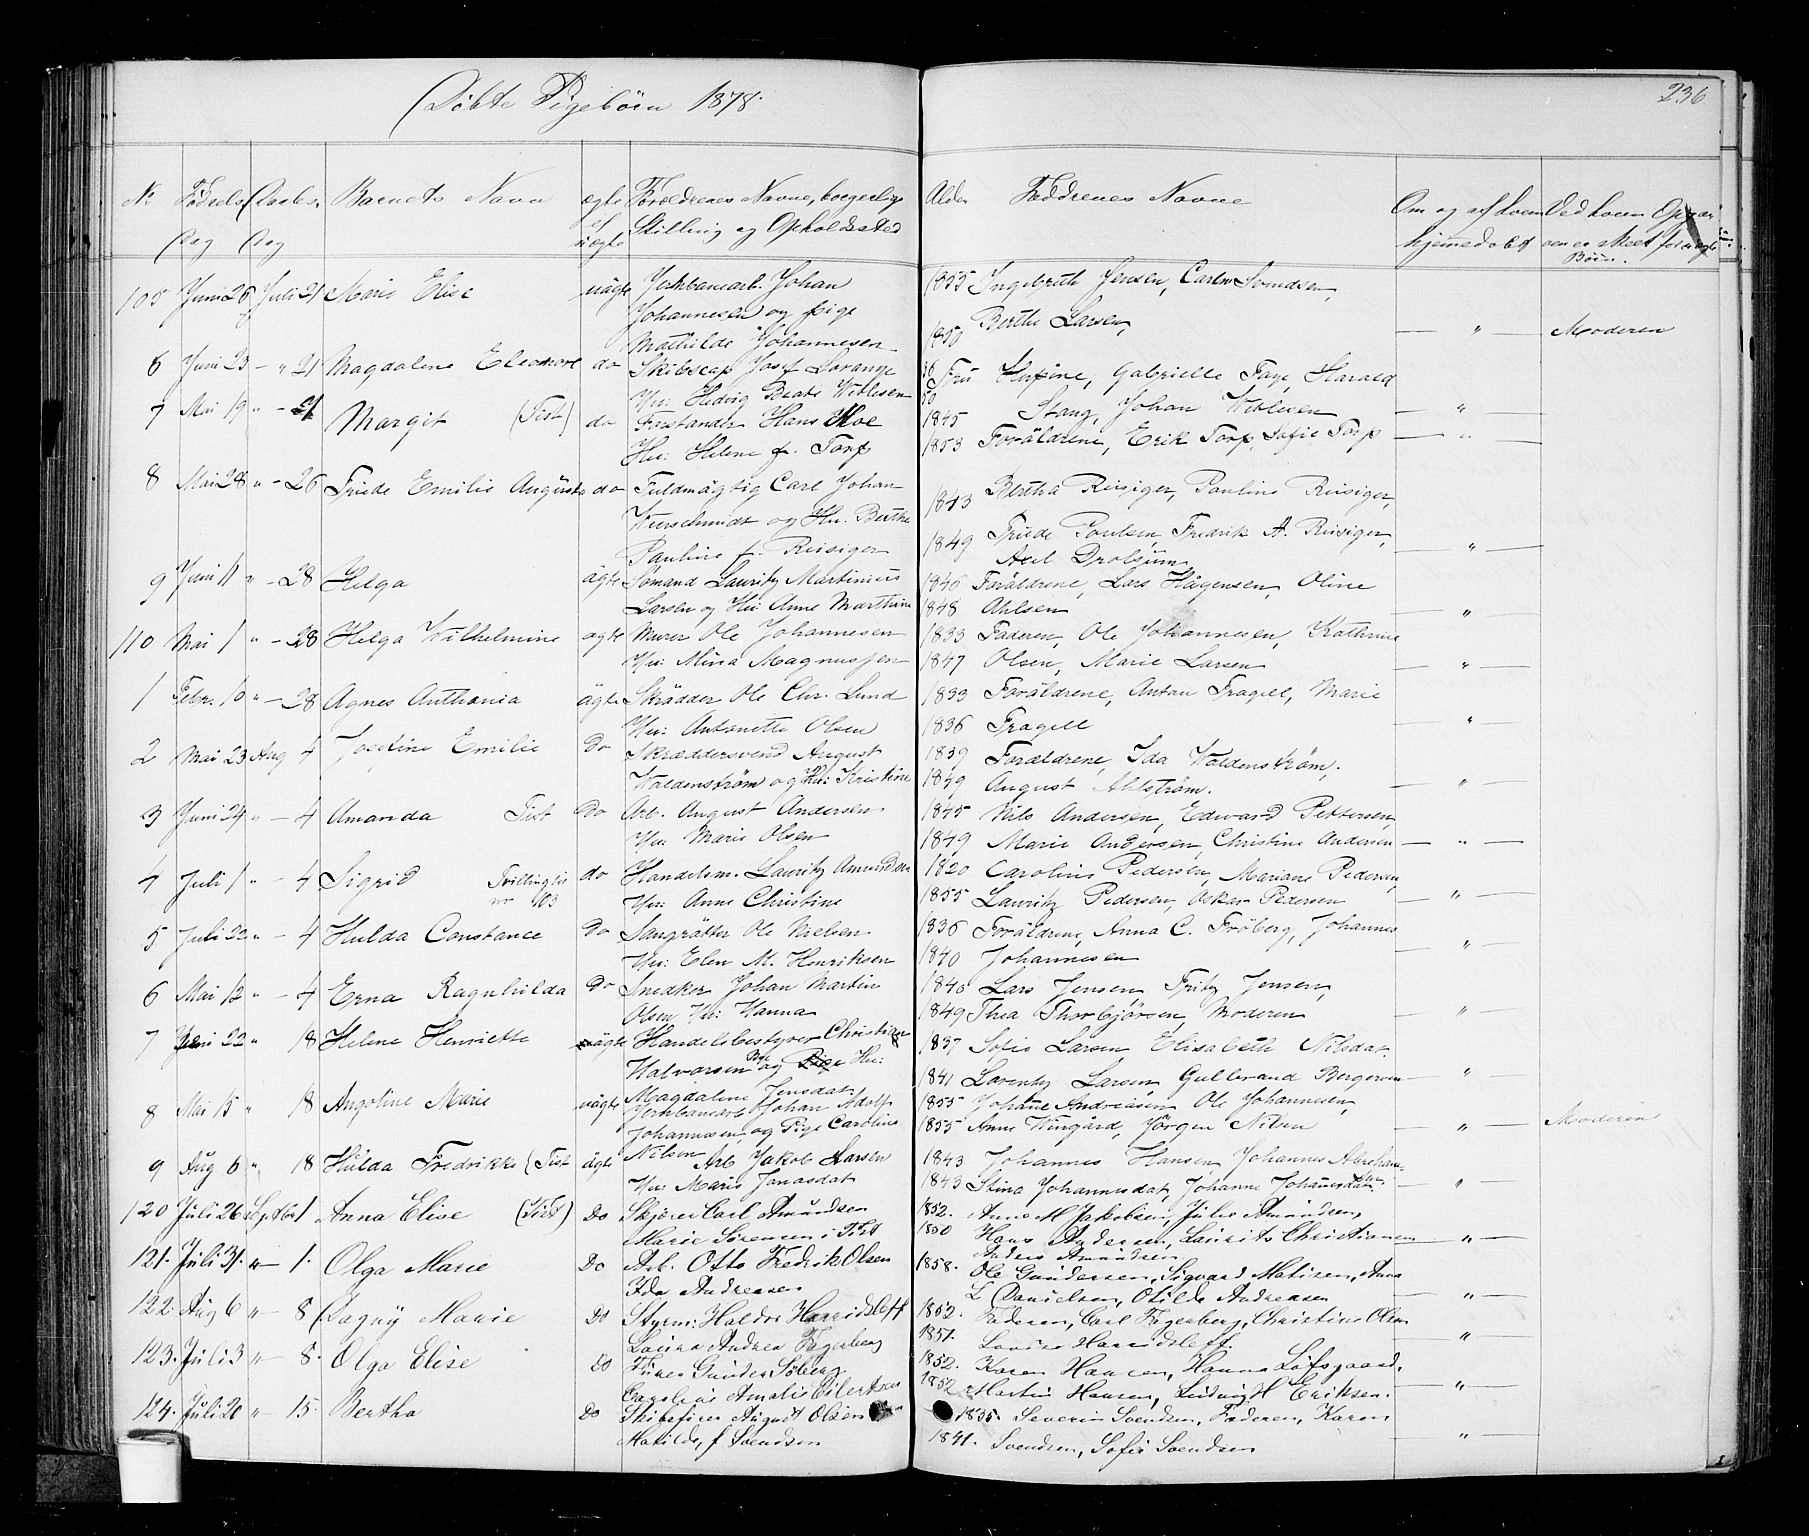 Døbte Pigebörn 1878.
236
No Fødsels Daabs. Barnets Navn ægte Forældrenes Navne, borgerlige Alder Faddrenes Navne Om og af hvem Ved hvem Opgav
Dag Dag el uægte Stilling og Opholdssted hjemedøbt oven er skeet for uægte Börn.
105 Juni 26 Juli 21 Marie Elise uägte Jernbanearb. Johan 1855 Ingebreth Jensen, Carl Svendsen,
Johannesen og Pige Berthe Larsen,
Mathilde Johannesen 1850 — " — Moderen
6 Juni 23 — " 21 Magdalene Eleonore do Skibscap Josef Lorange 36 Fru Herpine, Gabrielle Faye, Harald
Hu: Hedvig Beate Wetlesen 50 Stang, Johan Wetlesen — " —
7 Mai 19 " — 21 Margit (Tist) do Forstander Hans Moe 1845 Foräldrene, Erik Torp, Sofie Torp
Hu: Helene f. Torp 1853 — " —
8 Mai 28 " — 26 Friede Emilie Augusta do Fuldmägtig Carl Johan 1843 Bertha Reisiger, Pauline Reisiger,
Wurschmidt og Hu. Berthe 1849 Friede Poulsen, Fredrik A. Reisiger,
Pauline f. Reisiger Axel Drolsum — " —
9 Juni 11 " — 28 Helga ägte Sømand Lauritz Martinius 1846 Foräldrene, Lars Hågensen, Oline
Larsen og Hu: Anne Marthine 1848 Ahlsen — " —
110 Mai 1 " — 28 Helga Wilhelmine ägte Murer Ole Johannesen 1833 Faderen, Ole Johannesen, Kathrine
Hu: Mina Magnussen 1847 Olsen, Marie Larsen — " —
1 Febr. 10 " — 28 Agnes Anthonia ägte Skrädder Ole Chr. Lund 1833 Foräldrene, Anton Fragell, Marie
Hu: Antonette Olsen 1836 Fragell — " —
2 Mai 23 Aug 4 Josefine Emilie Do Skræddersvend August 1839 Forældrene, Ida Waldenstrøm,
Waldenstrøm og Hu: Kristine 1849 August Ahlstrøm. — " —
3 Juni 24 " — 4 Amanda Tist Do Arb. August Andersen 1845 Nils Andersen, Edward Pettersen,
Hu: Marie Olsen 1849 Marie Andersen, Christine Andersen — " —
4 Juli 1 " — 4 Sigrid Tvilling til nr 103 do Handelsm. Lauritz Amundsen 1820 Caroline Pedersen, Mariane Pedersen,
Hu: Anne Christine 1855 Lauritz Pedersen, Oskar Pedersen — " —
5 Juli 22 " — 4 Hulda Constance Do Ole Nielsen 1836 Foräldrene, Anna C. Fröberg, Johannes
Hu: Elen M. Henriksen 1840 Johannesen — " —
6 Mai 12 " — 4 Erna Ragnhilda Do Snedker Johan Martin 1840 Lars Jensen, Fritz Jensen,
Olsen Hu: Hanna 1849 Thea Thorbjörsen, Moderen — " —
7 Juni 22 " 18 Helene Henriette ägte Handelsbestyrer Christian 1837 Sofie Larsen, Elisabeth Nilsdat.
Halvorsen og Pige Hu: 1841 Lorentz Larsen, Gulbrand Bergersen — " —
Magdalene Jensdat
8 Mai 15 " 18 Angoline Marie uägte Jernbanearb Johan Adolf 1855 Johane Andreasen, Ole Johannesen,
Johannesen og Pige Caroline 1855 Anne Wingård, Jörgen Nilsen — " — Moderen
Nilsen
9 Aug 6 " 18 Hulda Fredrikke (Tist ägte Arb Jakob Larsen 1843 Johannes Hansen, Johannes Abraham-
Hu: Marie Jonasdat 1843 Stina Johannesdat, Johanne Johannesdat — " —
120 Juli 26 Septbr 1 Anna Elise (Tist) Do Skjörer Carl Amundsen 1852. Anne M Jakobsen, Julie Amundsen,
Marie Sörensen i Tist 1850 Hans Andersen, Laurits Christiansen — " —
Anders Amundsen
121. Juli 31. " 1. Olga Marie Do Arb. Otto Fredrik Olsen 1858. Ole Gundersen, Sigvard Matisen, Anna
Ida Andreasen L Danielsen, Otilde Andreasen — " —
122. Aug 6 " 8 Dagny Marie Do Styrm: Haldor Harridsleff 1852. Faderen, Carl Fagerberg, Christine Olsen
Laura Andrea Fagerberg 1851. Lovise Harridsleff. — " —
123. Juli 3 " 8. Olga Elise Do Gunder Söberg 1852. Karen Hansen, Hanna Löfsgaard,
Caroline Amalie Eilertsen 1852 Martin Hansen, Ludvig H Eriksen. — " —
124. Juli 20 " 15. Bertha Do Skibsfører August Olsen 1835. Severin Svendsen, Faderen, Karen
Matilde, f Svendsen 1841. Svendsen, Sofie Svendsen — " —